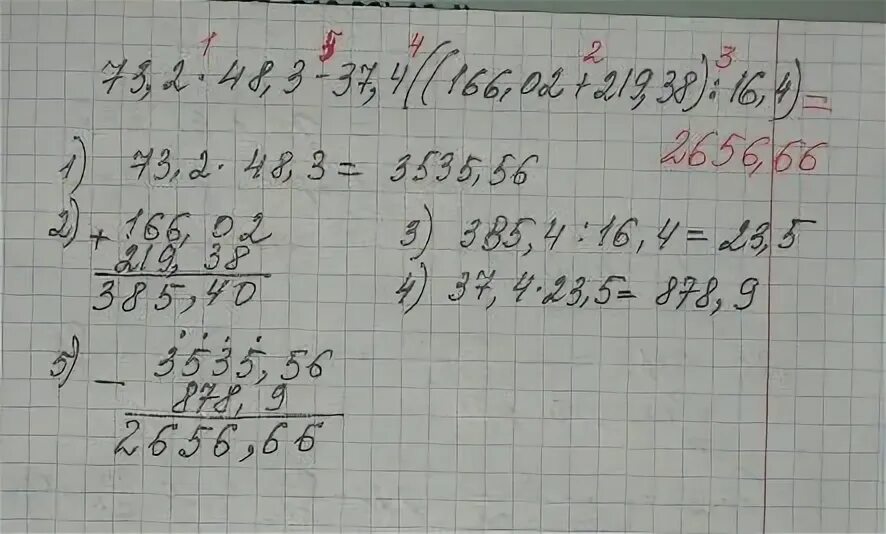 1 5 4 2 3
73,2 · 48,3 - 37,4((166,02+219,38):16,4)=
2656,66
1) 73,2 · 48,3 = 3535,56
2) + 166,02
219,38
385,40
3) 385,4 : 16,4 = 23,5
4) 37,4 · 23,5 = 878,9
5) - 3535,56
878,9
2656,66